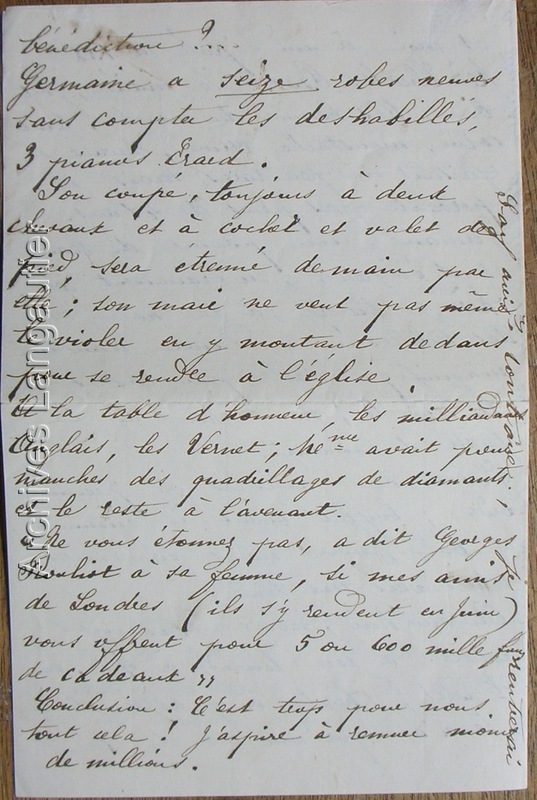 bénédiction ?...
Germaine a seize robes neuves
sans compter les deshabillés,
3 pianos Erard.
Son coupé, toujours à deux
chevaux et à cocher et valet de
pied, sera étrenné demain par
elle ; son mari ne veut pas même
le violer en y montant dedans
pour se rendre à l'église.
A la table d'honneur, les milliardaires
Anglais, les Vernet ; Me avait pour
manches des quadrillages de diamants
et le reste à l'avenant.
« Ne vous étonnez pas, a dit Georges
à sa femme, si mes amis
de Londres (ils s'y rendent en Juin)
vous offrent pour 5 ou 600 mille francs
de cadeaux »
Conclusion : C'est trop pour nous
tout cela ! J'aspire à remuer moins
de millions.
je rentrerai
Archives Langaullier